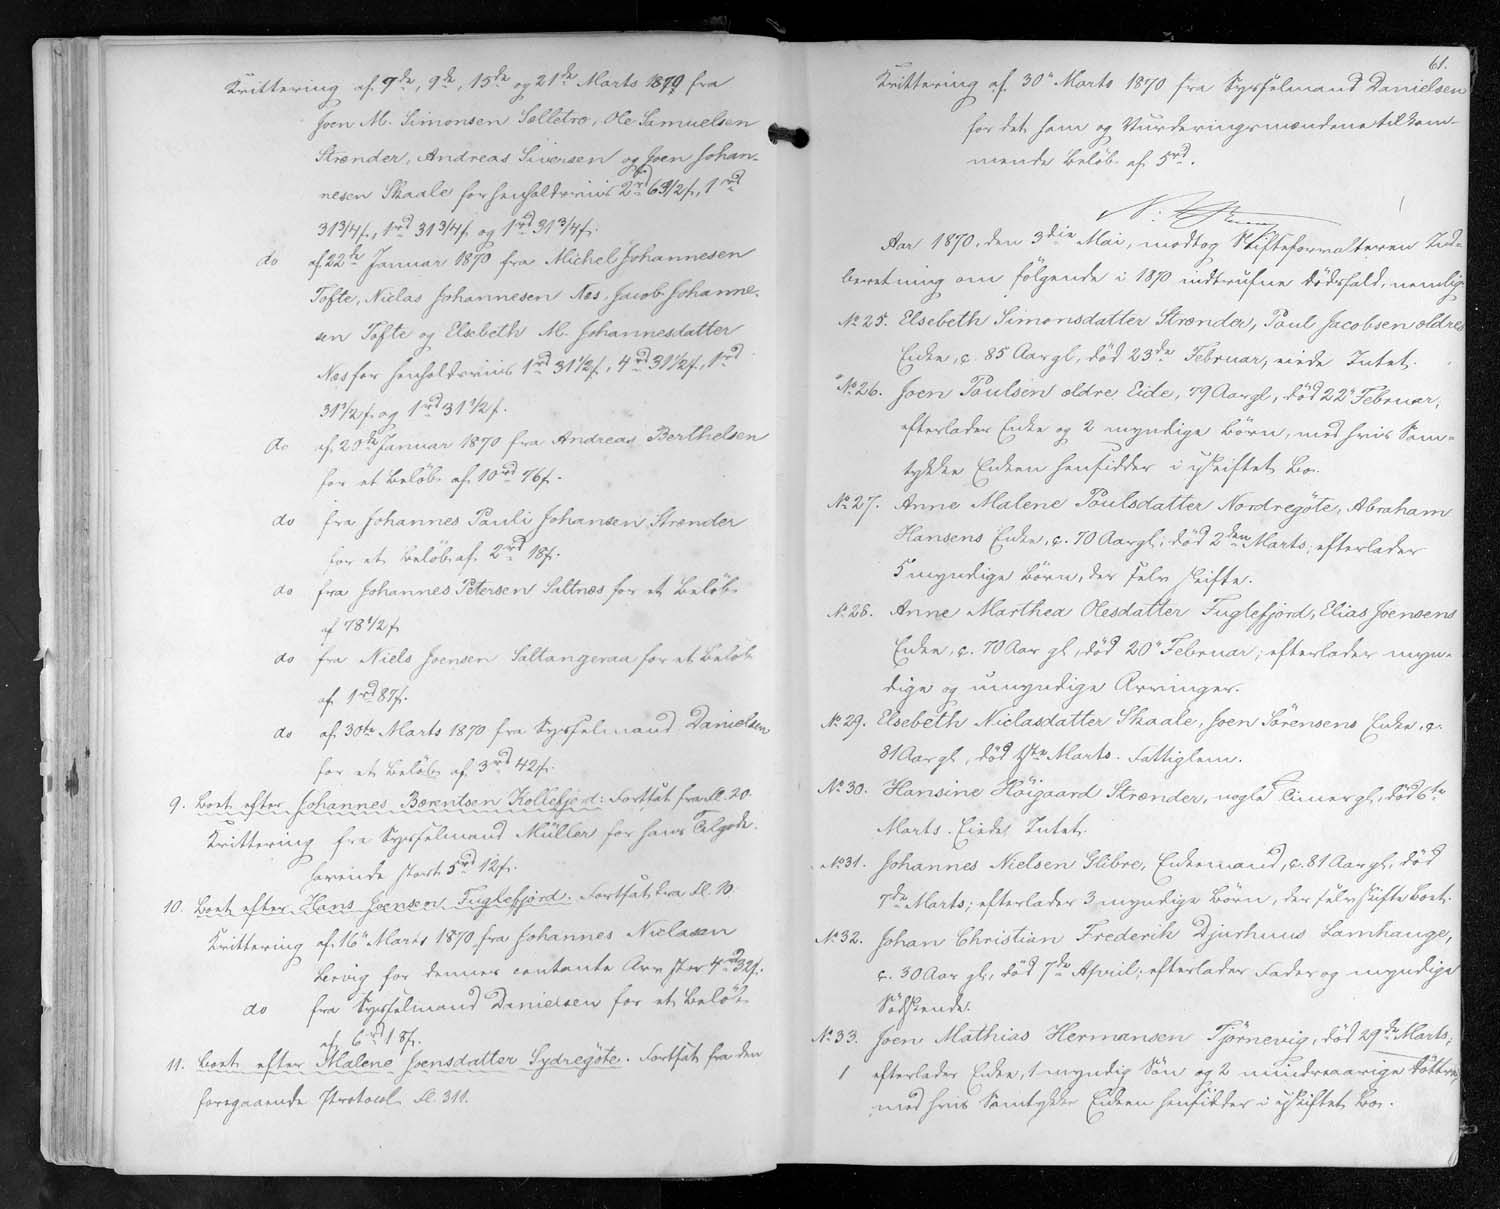 Kvittering af 7de, 9de, 15de og 21de Marts 1870 fra
Joen M. Simonsen Selletræ, Ole Samuelsen
Strænder, Andreas Siversen og Joen Johan-
nesen Skaale for henholdsviis 2rd 69 1/2 f, 1rd
31 3/4 f, 1rd 31 3/4 f og 1rd 31 3/4 f.
do af 22de Januar 1870 fra Michel Johannesen
Tofte, Niclas Johannesen Næs, Jacob Johanne-
sen Tofte og Elsebeth M. Johannesdatter
Næs for henholdsviis 1rd 31 1/2 f, 4rd 31 1/2 f, 1rd
31 1/2 f og 1rd 31 1/2 f.
do af 20de Januar 1870 fra Andreas Berthelsen
for et Beløb af 10rd 76 f.
do fra Johannes Pauli Johansen Strænder
for et Beløb af 2rd 18 f.
do fra Johannes Petersen Saltnæs for et Beløb
af 78 1/2 f
do fra Niels Joensen Saltangeraa for et Beløb
af 1rd 87 f.
do af 30te Marts 1870 fra Sysselmand Danielsen
for et Beløb af 3rd 42 f.
9. Boet efter Johannes Berentsen Kollefjord: Fortsat fra Fl. 20.
Kvittering fra Sysselmand Müller for hans Tilgode-
havende stort 5rd 12 f.
10. Boet efter Hans Joensen Fuglefjord. Fortsat fra Fl. 10.
Kvittering af 16" Marts 1870 fra Johannes Niclasen
Lervig for dennes contante Arv stor 4rd 32 f.
do fra Sysselmand Danielsen for et Beløb
af 6rd 18 f.
11. Boet efter Malene Joensdatter Sydregöte. Fortsat fra den
foregaaende Protocol Fl. 311.
61.
Kvittering af 30" Marts 1870 fra Sysselmand Danielsen
for det ham og Vurderingsmændene tilkom-
mende Beløb af 5rd.
Aar 1870, den 3die Mai, modtog Skifteforvalteren Ind-
beretning om følgende i 1870 indtrufne Dødsfald, nemlig:
No 25. Elsebeth Simonsdatter Strænder, Poul Jacobsen ældres
Enke, c. 85 Aar gl, død 23de Februar, eiede Intet.
No 26. Joen Poulsen ældre Eide, 79 Aar gl, død 22" Februar,
efterlader Enke og 2 myndige Børn, med hvis Sam-
tykke Enken hensidder i uskiftet Bo.
No 27. Anne Malene Poulsdatter Nordregöte, Abraham
Hansens Enke, c. 70 Aar gl, død 2den Marts; efterlader
5 myndige Børn, der selv skifte.
No 28. Anne Marthea Olesdatter Fuglefjord, Elias Joensens
Enke, c. 70 Aar gl, død 20" Februar; efterlader myn-
dige og umyndige Arvinger.
No 29. Elsebeth Niclasdatter Skaale, Joen Sörensens Enke, c.
81 Aar gl, død 1ste Marts. Fattiglem.
No 30. Hansine Höigaard Strænder, nogle Timer gl, død 6te
Marts. Eiede Intet.
No 31. Johannes Nielsen Glibre, Enkemand, c. 81 Aar gl, død
7de Marts; efterlader 3 myndige Børn, der selv skifte Boet.
No 32. Johan Christian Frederik Djurhuus Lamhauge,
c. 30 Aar gl, død 7de April; efterlader Fader og myndige
Sødskende.
No 33. Joen Mathias Hermansen Tjørnevig, død 29de Marts;
1 efterlader Enke, 1 myndig Søn og 2 mindreaarige Døttre,
med hvis Samtykke Enken hensidder i uskiftet Bo.